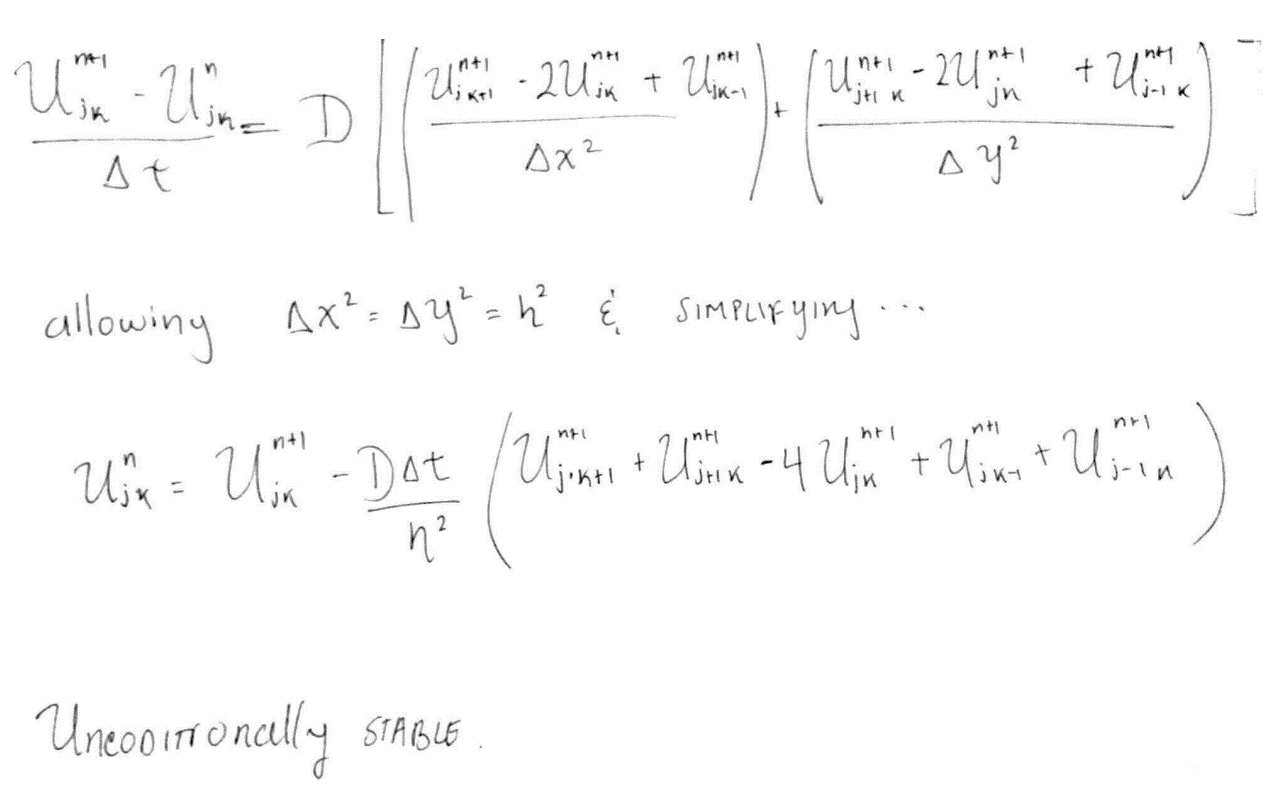 \frac{U_{jk}^{n+1} - U_{jk}^{n}}{\Delta t} = D \left[ \left( \frac{U_{jk+1}^{n+1} - 2U_{jk}^{n+1} + U_{jk-1}^{n+1}}{\Delta x^2} \right) + \left( \frac{U_{j+1k}^{n+1} - 2U_{jk}^{n+1} + U_{j-1k}^{n+1}}{\Delta y^2} \right) \right]
allowing Δx² = Δy² = h² & SIMPLIFYING ...
U_{jk}^{n} = U_{jk}^{n+1} - \frac{D\Delta t}{h^2} \left( U_{j,k+1}^{n+1} + U_{j+1k}^{n+1} - 4U_{jk}^{n+1} + U_{jk-1}^{n+1} + U_{j-1k}^{n+1} \right)
Uncoditionally STABLE.